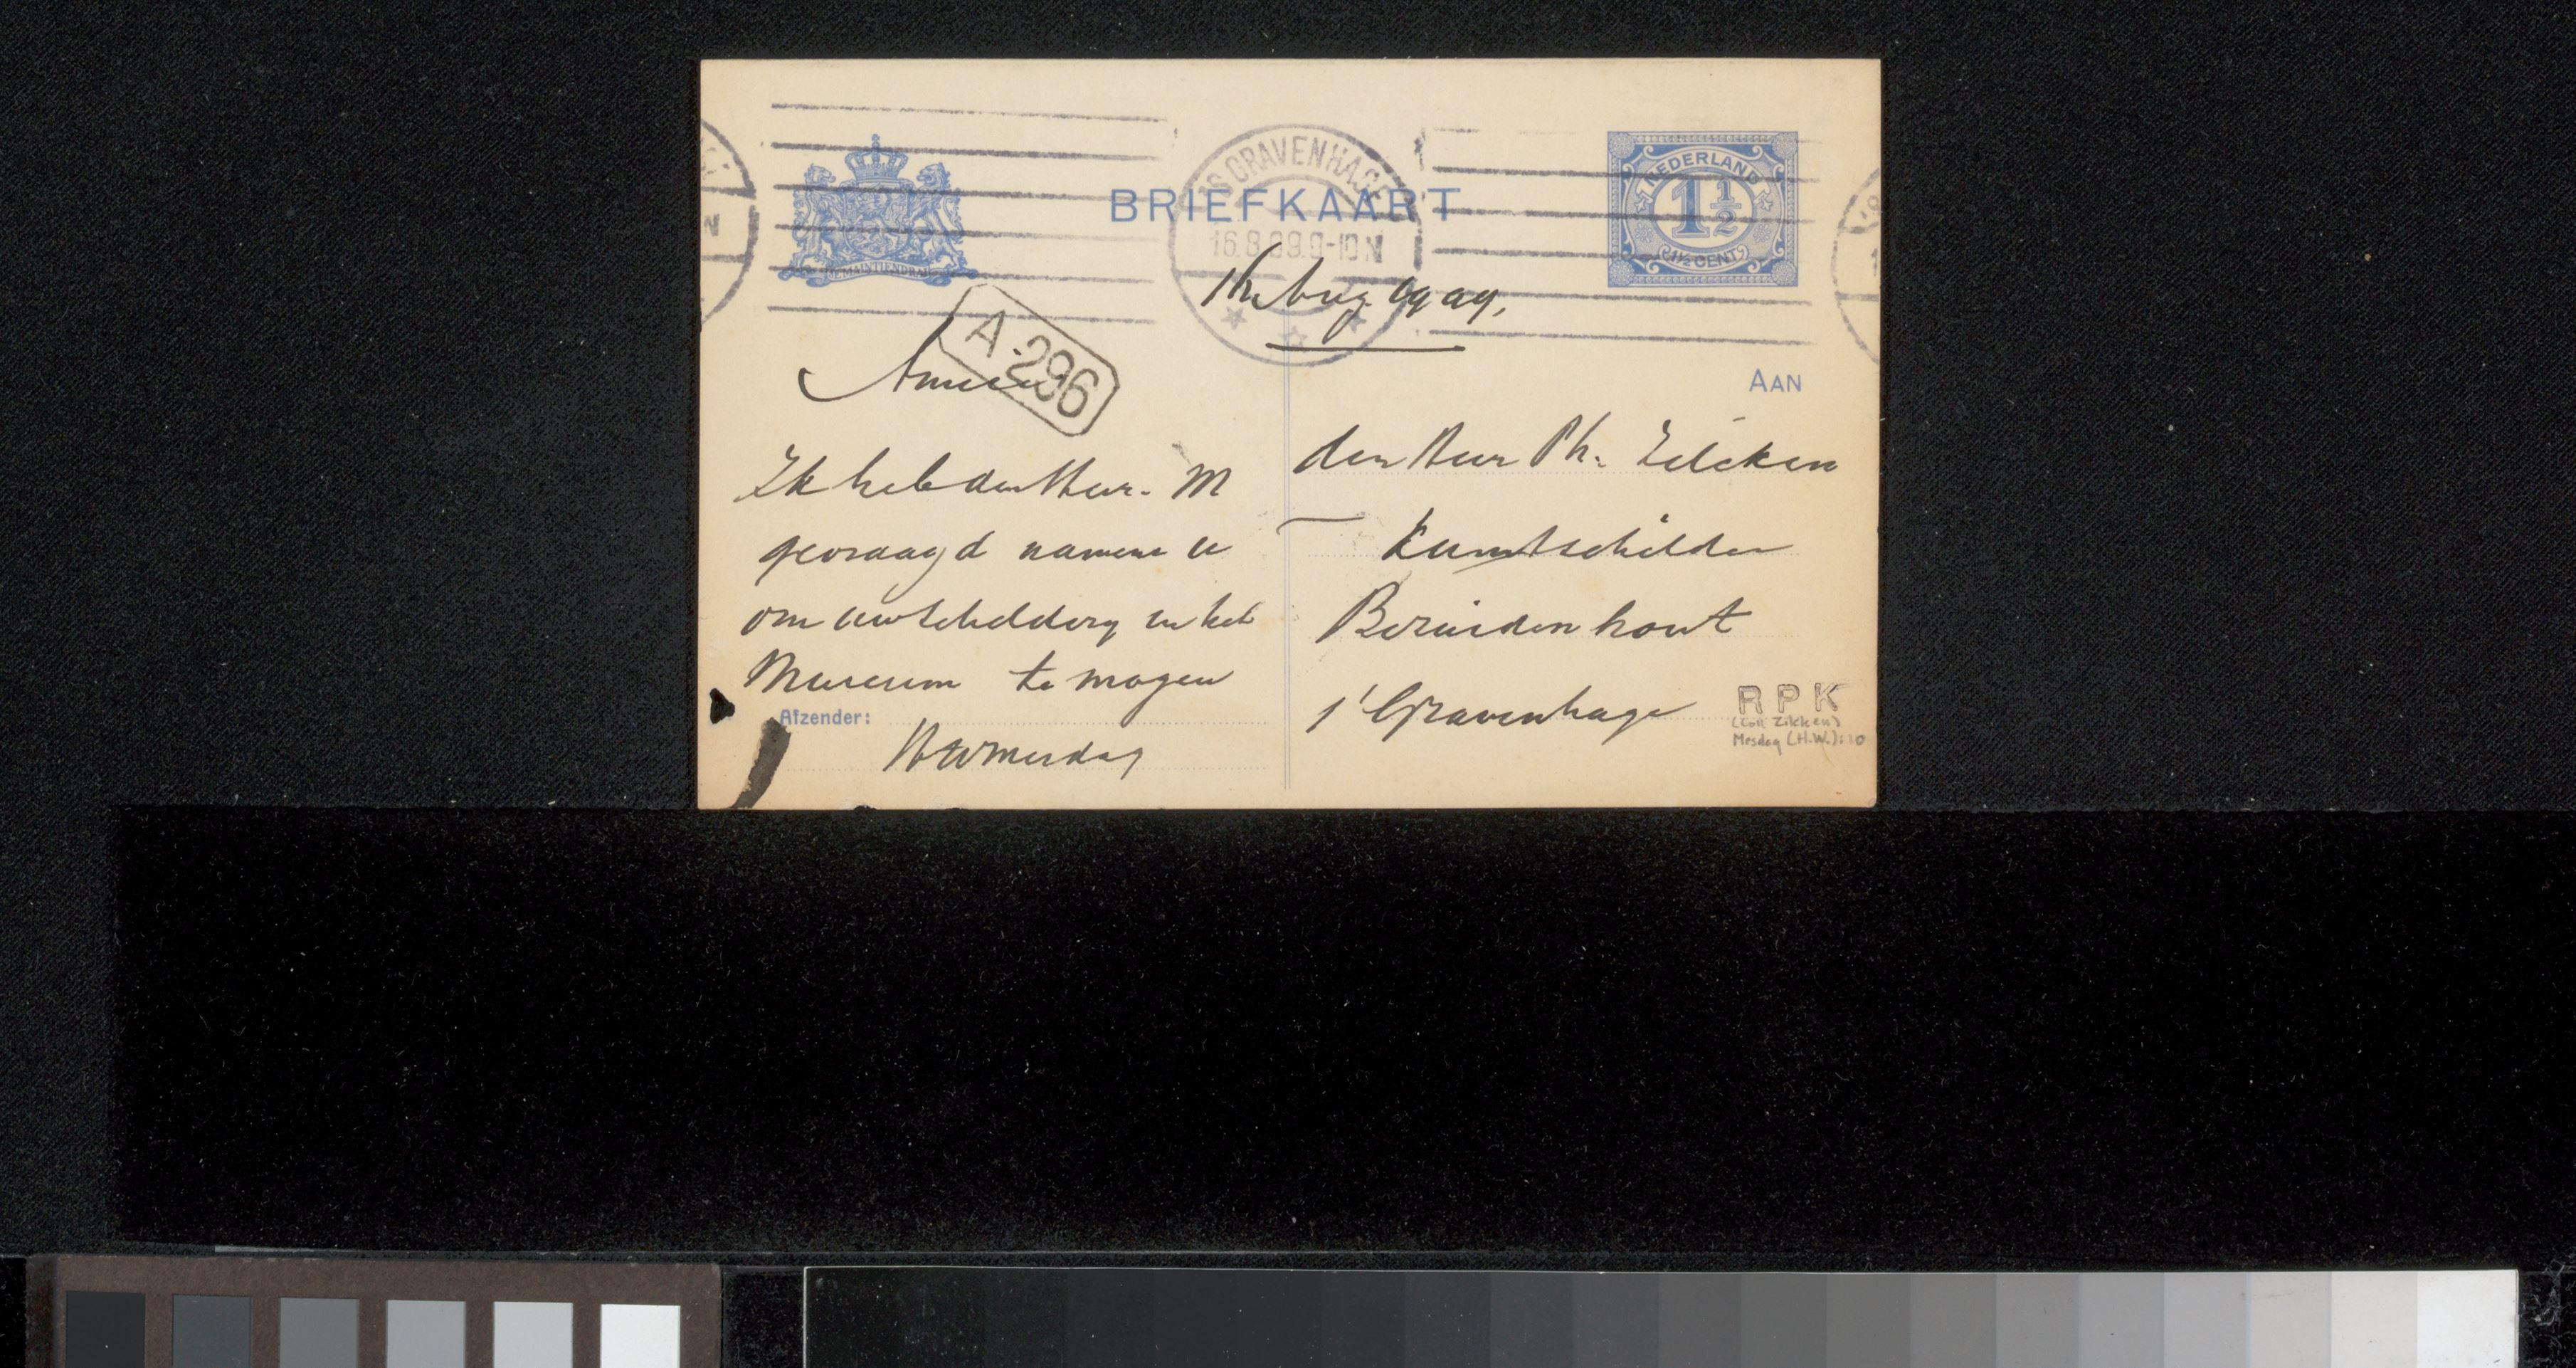 BRIEFKAART
'S GRAVENHAGE
16.8.09.9-10 N
NEDERLAND
1½
(1½ CENT)
JE MAINTIENDRAI
16 Aug. 1909.
A·296
Amice
Ik heb den Heer. M
gevraagd namens u
om uw schilderij in het
Museum te mogen
Afzender:
HWMesdag
AAN
den Heer Ph. Zilcken
Kunstschilder
Bezuidenhout
s'Gravenhage
RPK
(Coll. Zilcken)
Mesdag (H.W.): 10